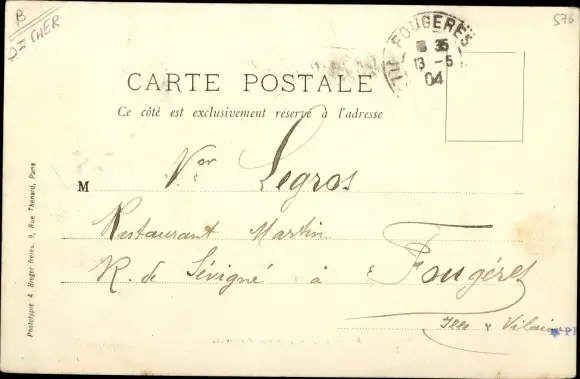 B
CHER
576
FOUGERES
35
13 -5
04
CARTE POSTALE
Ce côté est exclusivement réservé à l'adresse
M Vor Legros
Restaurant Martin
R. de Sévigné à Fougères
Ille & Vilaine
Phototypie A. Breger frères, 9, Rue Thénard, Paris